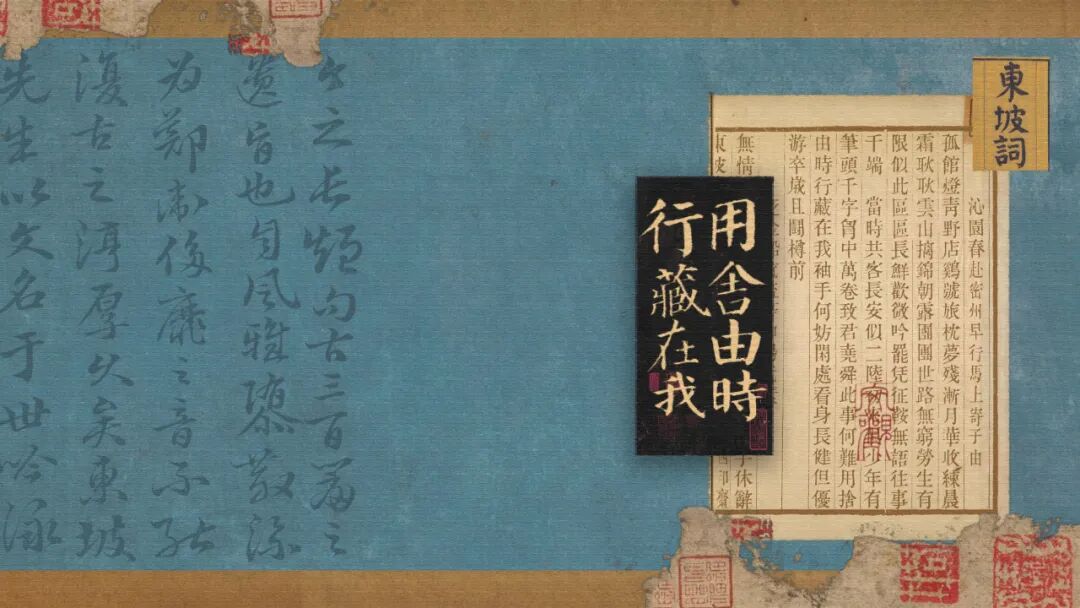 東坡詞
沁園春赴密州早行馬上寄子由
孤館燈青野店鷄號旅枕夢殘漸月華收練晨
霜耿耿雲山摛錦朝露團團世路無窮勞生有
限似此區區長鮮歡微吟罷凭征鞍無語往事
千端 當時共客長安似二陸初來俱少年有
筆頭千字胷中萬卷致君堯舜此事何難用捨
由時行藏在我袖手何妨閑處看身長健但優
游卒歲且鬭樽前
無情
子休辭
東坡
用舍由時
行藏在我
今之長短句古三百篇之
遺旨也自風雅隳散流
为鄭衛侈靡之音不能
復古之淳厚久矣東坡
先生以文名于世吟詠